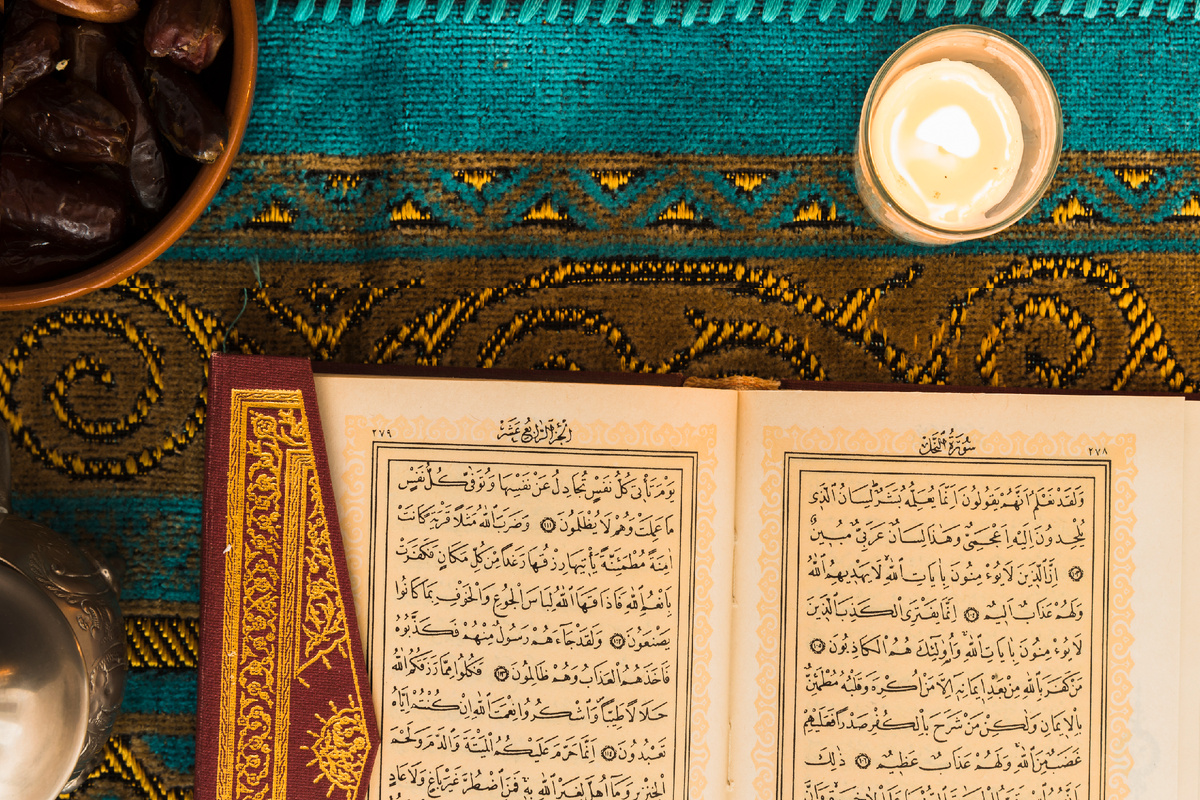 سُورَةُ النَّحْلِ ٢٧٨
وَلَقَدْ نَعْلَمُ اَنَّهُمْ يَقُولُونَ اِنَّمَا يُعَلِّمُهُ بَشَرٌ لِسَانُ الَّذِى
يُلْحِدُونَ اِلَيْهِ اَعْجَمِىٌّ وَهٰذَا لِسَانٌ عَرَبِىٌّ مُبِينٌ
﴿١٠٣﴾ اِنَّ الَّذِينَ لَا يُؤْمِنُونَ بِاٰيَاتِ اللّٰهِ لَا يَهْدِيهِمُ اللّٰهُ
وَلَهُمْ عَذَابٌ اَلِيمٌ ﴿١٠٤﴾ اِنَّمَا يَفْتَرِى الْكَذِبَ الَّذِينَ
لَا يُؤْمِنُونَ بِاٰيَاتِ اللّٰهِ وَاُولٰئِكَ هُمُ الْكَاذِبُونَ ﴿١٠٥﴾
مَنْ كَفَرَ بِاللّٰهِ مِنْ بَعْدِ اِيمَانِهِ اِلَّا مَنْ اُكْرِهَ وَقَلْبُهُ مُطْمَئِنٌّ
بِالْاِيمَانِ وَلٰكِنْ مَنْ شَرَحَ بِالْكُفْرِ صَدْرًا فَعَلَيْهِمْ
غَضَبٌ مِنَ اللّٰهِ وَلَهُمْ عَذَابٌ عَظِيمٌ ﴿١٠٦﴾ ذٰلِكَ
اَلْجُزْءُ الرَّابِعُ عَشَرَ ٢٧٩
يَوْمَ تَأْتِى كُلُّ نَفْسٍ تُجَادِلُ عَنْ نَفْسِهَا وَتُوَفّٰى كُلُّ نَفْسٍ
مَا عَمِلَتْ وَهُمْ لَا يُظْلَمُونَ ﴿١١١﴾ وَضَرَبَ اللّٰهُ مَثَلًا قَرْيَةً كَانَتْ
اٰمِنَةً مُطْمَئِنَّةً يَأْتِيهَا رِزْقُهَا رَغَدًا مِنْ كُلِّ مَكَانٍ فَكَفَرَتْ
بِاَنْعُمِ اللّٰهِ فَاَذَاقَهَا اللّٰهُ لِبَاسَ الْجُوعِ وَالْخَوْفِ بِمَا كَانُوا
يَصْنَعُونَ ﴿١١٢﴾ وَلَقَدْ جَاءَهُمْ رَسُولٌ مِنْهُمْ فَكَذَّبُوهُ
فَاَخَذَهُمُ الْعَذَابُ وَهُمْ ظَالِمُونَ ﴿١١٣﴾ فَكُلُوا مِمَّا رَزَقَكُمُ اللّٰهُ
حَلَالًا طَيِّبًا وَاشْكُرُوا نِعْمَتَ اللّٰهِ اِنْ كُنْتُمْ اِيَّاهُ
تَعْبُدُونَ ﴿١١٤﴾ اِنَّمَا حَرَّمَ عَلَيْكُمُ الْمَيْتَةَ وَالدَّمَ وَلَحْمَ
الْخِنْزِيرِ وَمَا اُهِلَّ لِغَيْرِ اللّٰهِ بِهِ فَمَنِ اضْطُرَّ غَيْرَ بَاغٍ وَلَا عَادٍ